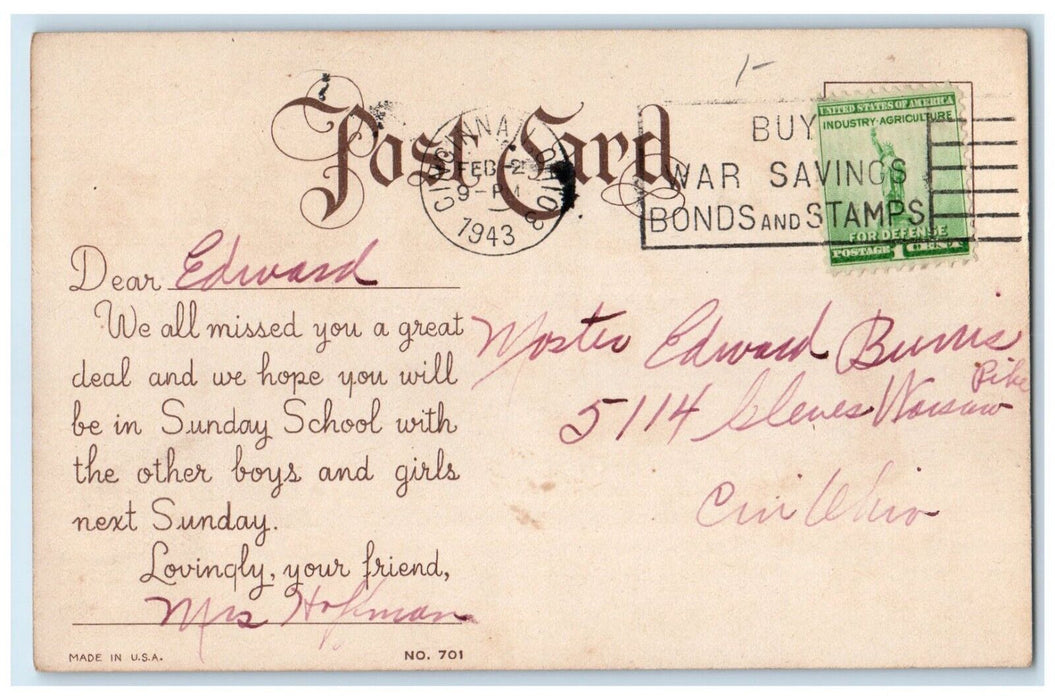 Post Card
CINCINNATI, OHIO
FEB -2
9-PM
1943
3
BUY
WAR SAVINGS
BONDS AND STAMPS
UNITED STATES OF AMERICA
INDUSTRY·AGRICULTURE
FOR DEFENSE
POSTAGE 1 CENT
Dear Edward
We all missed you a great
deal and we hope you will
be in Sunday School with
the other boys and girls
next Sunday.
Lovingly, your friend,
Mrs Hoffman
Master Edward Burris
5114 Cleves Warsaw Pike
Cin Ohio
MADE IN U.S.A.
NO. 701